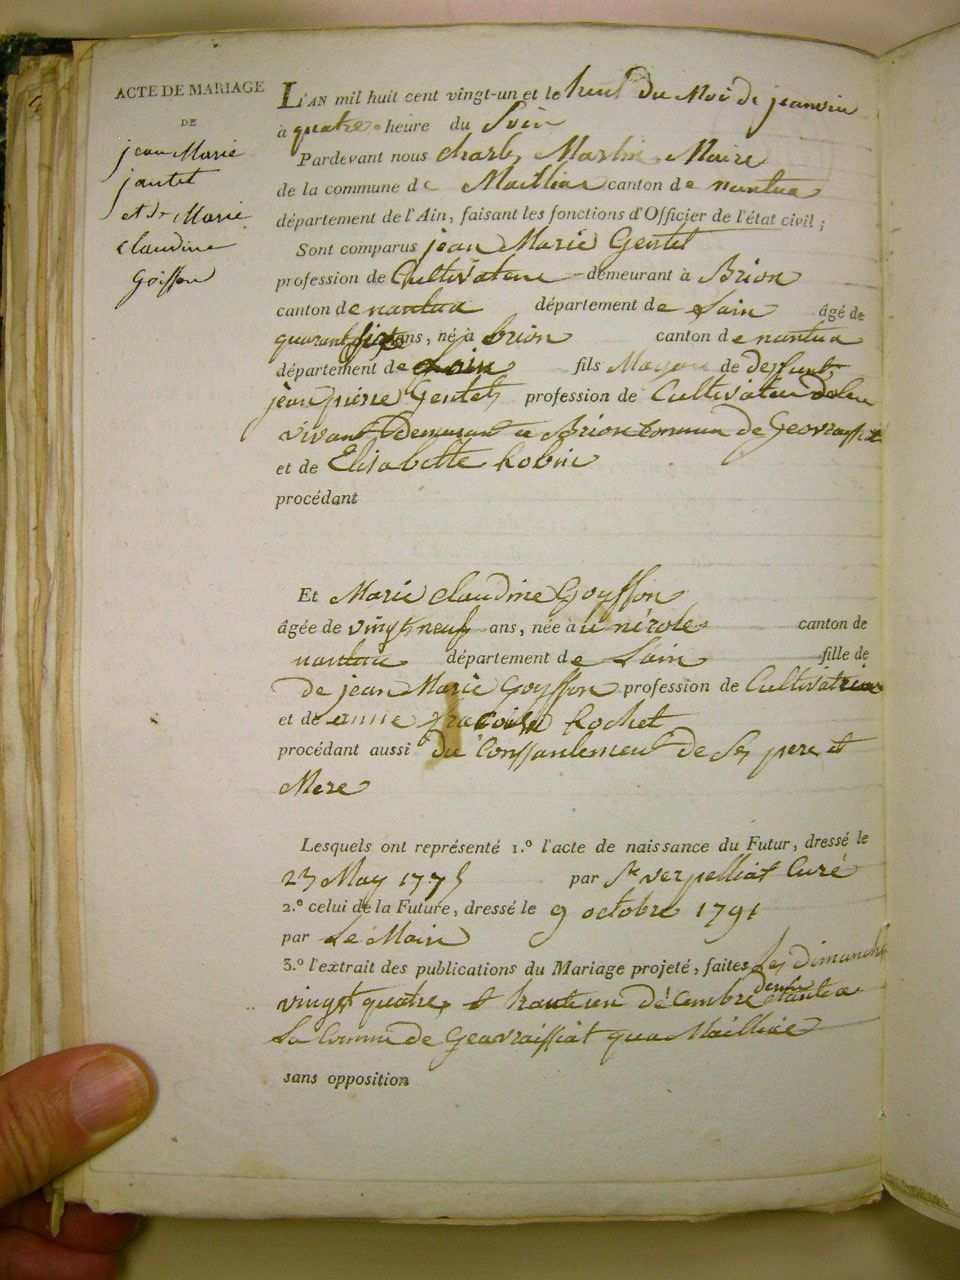 ACTE DE MARIAGE
DE
jean Marie
jantet
et dt Marie
claudine
Goiffon
L'AN mil huit cent vingt-un et le huit du Moi de jeanvié
à quatre heure du Soir
Pardevant nous charles Martin Maire
de la commune de Mailliat canton de nantua
département de l'Ain, faisant les fonctions d'Officier de l'état civil;
Sont comparus jean Marie Gentet
profession de Cultivateur demeurant à Brion
canton de nantua département de Lain âgé de
quarant six ans, né à brion canton de nantua
département de Lain fils Mageur de deffunt
jean pierre Gentet profession de Cultivateur de leu
vivant Demurant a Brion Commun de Geovraissiat
et de Elisabette Robin
procédant
Et Marie claudine Goyffon
âgée de vingt neuf ans, née à canton de
nantua département de Lain fille de
de jean Marie Goyffon profession de Cultivateur
et de anne Rochet
procédant aussi du Conssantement de Ses pere et
Mere
Lesquels ont représenté 1.º l'acte de naissance du Futur, dressé le
23 May 1775 par Sr verpelliat Curé
2.º celui de la Future, dressé le 9 octobre 1791
par Le Maire
3.º l'extrait des publications du Mariage projeté, faites Les dimanche
vingt quatre et trante un décembre tant a
La Commune de Geovraissiat qua Mailliat
sans opposition